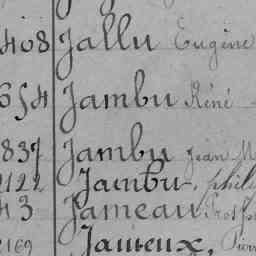 408 Jallu Eugène
654 Jambu Réné
837 Jambu Jean M
2122 Jambu, phili
43 Jameau Prosp
2169 Jauteux, Pierr